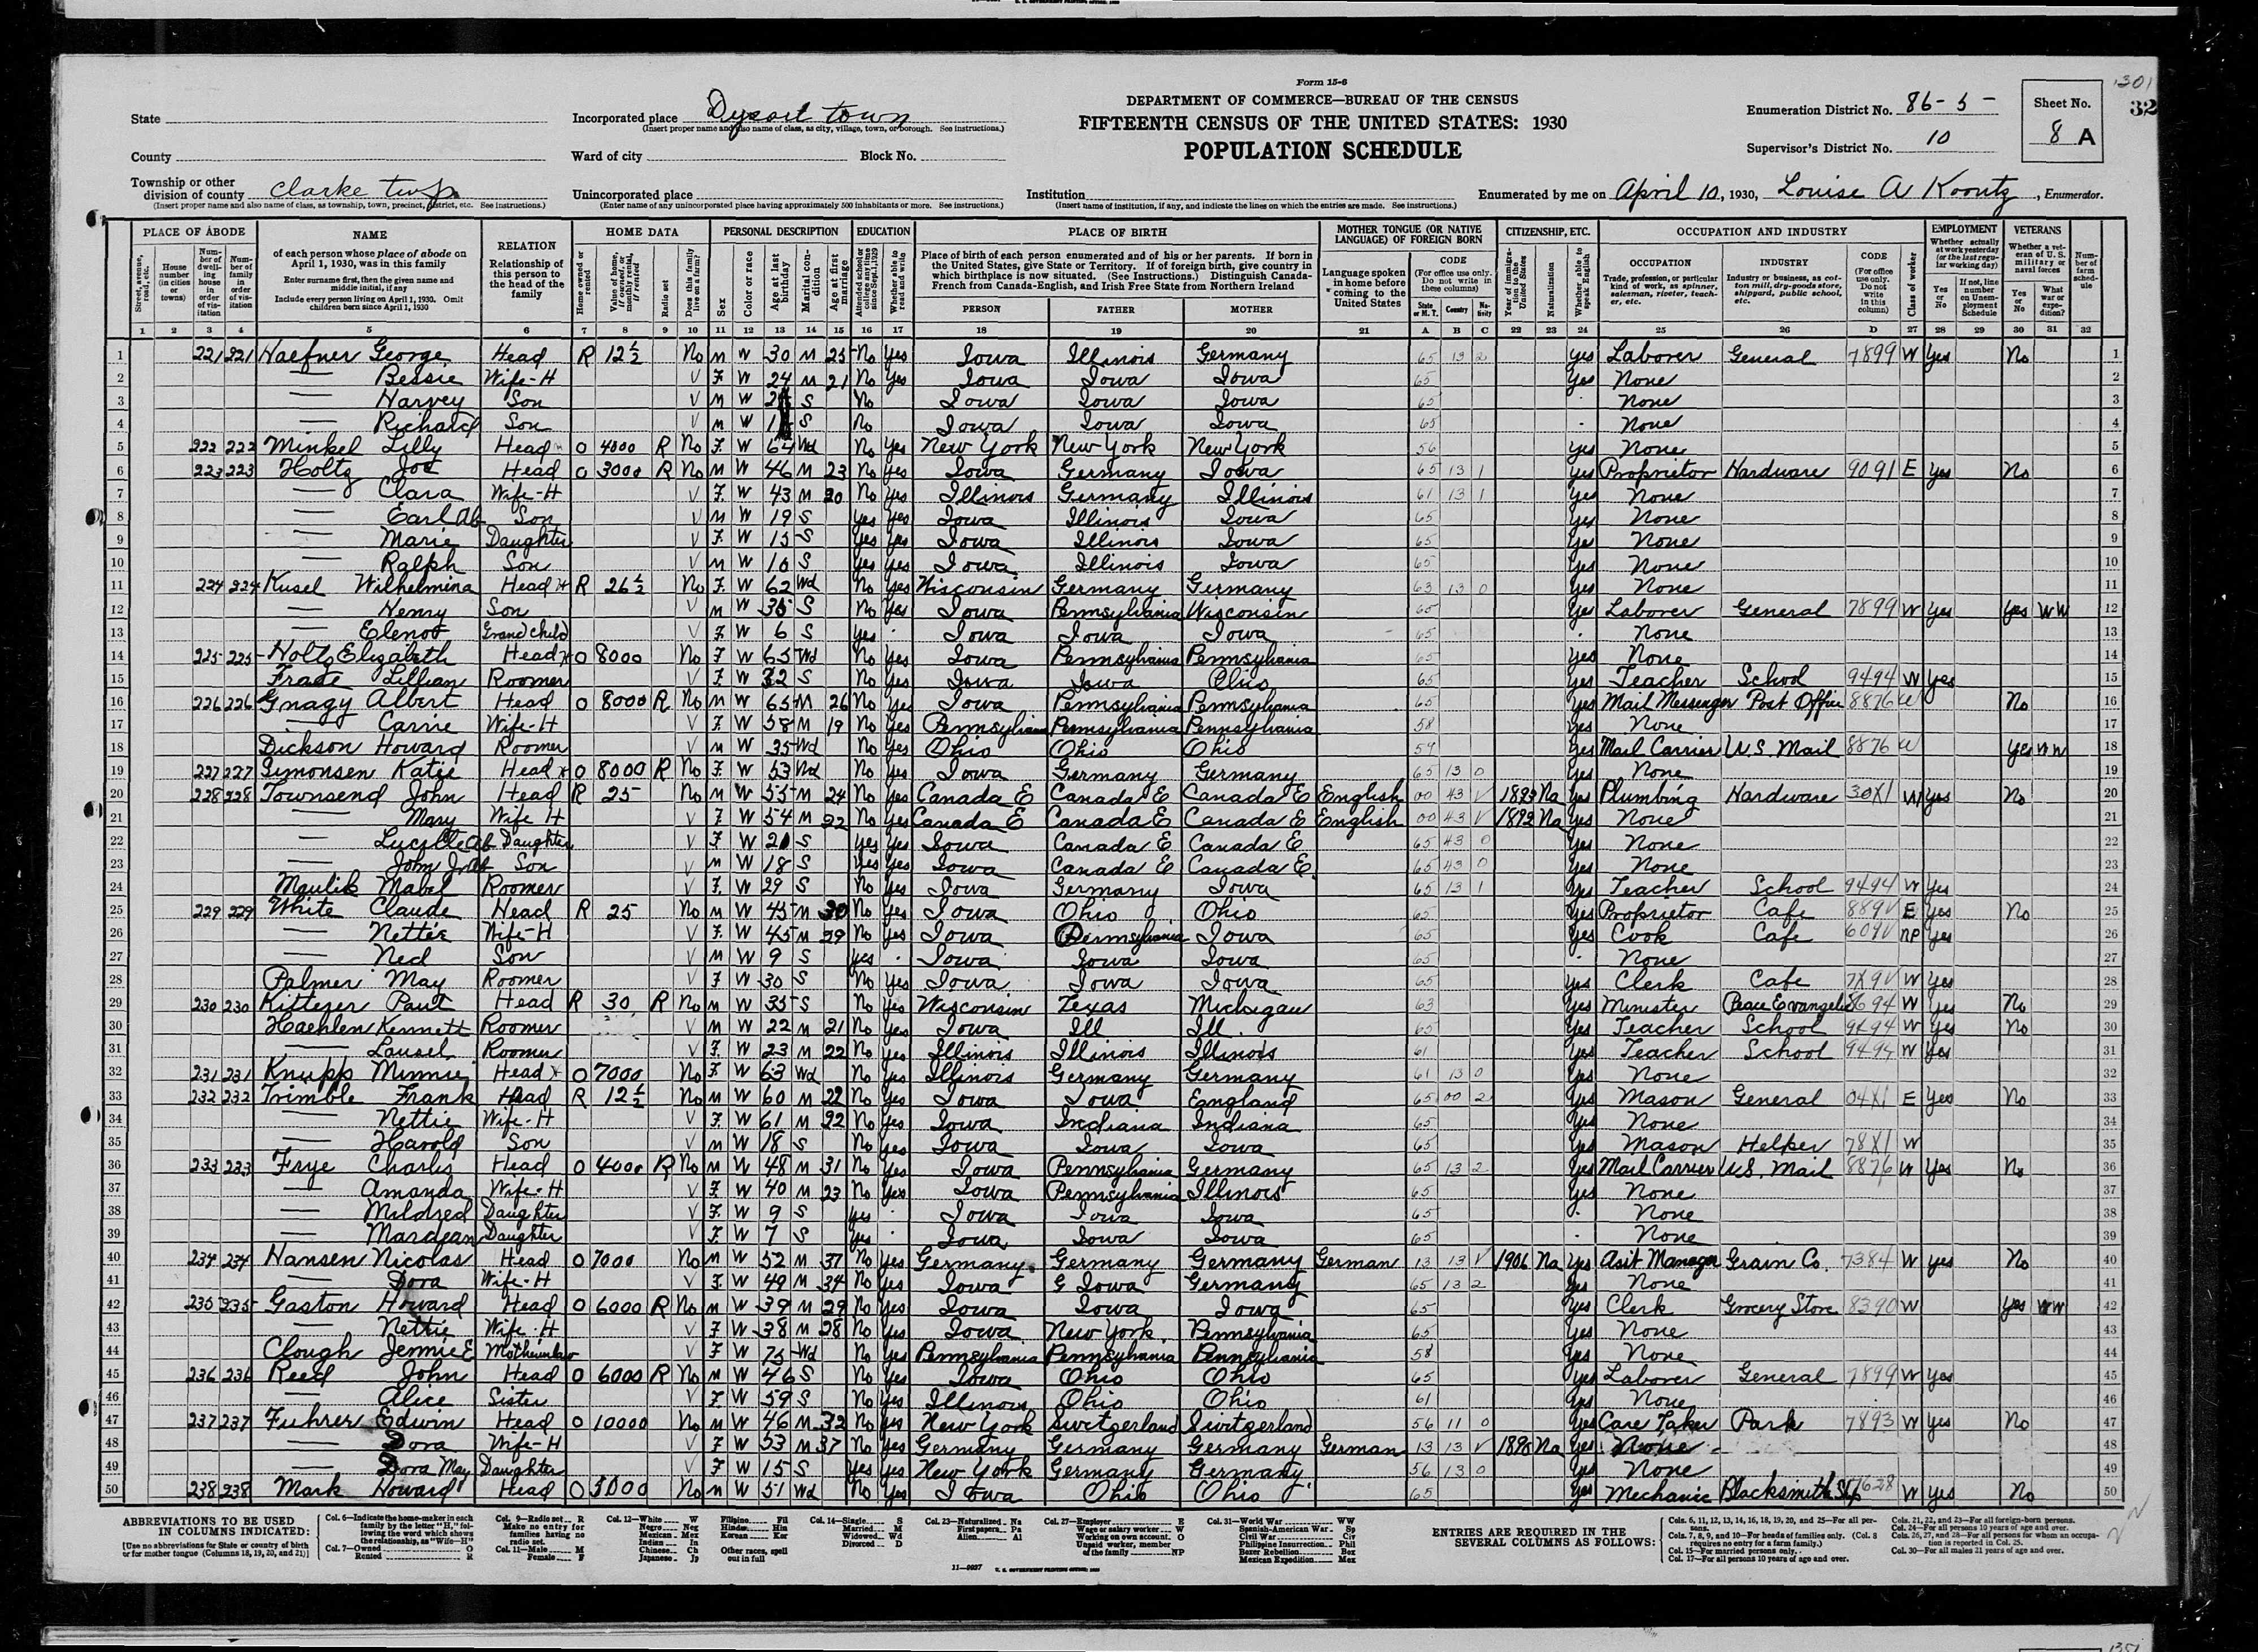 Form 15-6
DEPARTMENT OF COMMERCE—BUREAU OF THE CENSUS
FIFTEENTH CENSUS OF THE UNITED STATES: 1930
POPULATION SCHEDULE
State
Incorporated place Dysart town
(Insert proper name and also name of class, as city, village, town, or borough. See instructions.)
County
Ward of city Block No.
Township or other division of county Clarke twp
(Insert proper name and also name of class, as township, town, precinct, district, etc. See instructions.)
Unincorporated place
(Enter name of any unincorporated place having approximately 500 inhabitants or more. See instructions.)
Institution
(Insert name of institution, if any, and indicate the lines on which the entries are made. See instructions.)
Enumeration District No. 86-5-
Supervisor's District No. 10
Sheet No. 8 A
32
Enumerated by me on April 10, 1930, Louise A Koontz, Enumerator.
PLACE OF ABODE NAME RELATION HOME DATA PERSONAL DESCRIPTION EDUCATION PLACE OF BIRTH MOTHER TONGUE (OR NATIVE LANGUAGE) OF FOREIGN BORN CITIZENSHIP, ETC. OCCUPATION AND INDUSTRY EMPLOYMENT VETERANS
1 221 221 Haefner George Head R 12½ No M W 30 M 25 No Yes Iowa Illinois Germany 65 13 2 Yes Laborer General 7899 W Yes No
2 — Bessie Wife-H V F W 24 M 21 No Yes Iowa Iowa Iowa 65 Yes None
3 — Harvey Son V M W S No Iowa Iowa Iowa 65 None
4 — Richard Son V M W S No Iowa Iowa Iowa 65 None
5 222 222 Minkel Lilly Head O 4000 R No F W 64 Wd No Yes New York New York New York 56 Yes None
6 223 223 Holtz Joe Head O 3000 R No M W 46 M 23 No Yes Iowa Germany Iowa 65 13 1 Yes Proprietor Hardware 9091 E Yes No
7 — Clara Wife-H V F W 43 M 20 No Yes Illinois Germany Illinois 61 13 1 Yes None
8 — Earl Ab Son V M W 19 S Yes Yes Iowa Illinois Iowa 65 Yes None
9 — Marie Daughter V F W 15 S Yes Yes Iowa Illinois Iowa 65 Yes None
10 — Ralph Son V M W 10 S Yes Yes Iowa Illinois Iowa 65 Yes None
11 224 224 Kusel Wilhelmina Head H R 26½ No F W 62 Wd No Yes Wisconsin Germany Germany 63 13 0 Yes None
12 — Henry Son V M W 35 S No Yes Iowa Pennsylvania Wisconsin 65 Yes Laborer General 7899 W Yes Yes WW
13 — Elenor Grandchild V F W 6 S Yes Iowa Iowa Iowa 65 None
14 225 225 Holtz Elizabeth Head H O 8000 No F W 65 Wd No Yes Iowa Pennsylvania Pennsylvania 65 Yes None
15 Lillian Roomer V F W 32 S No Yes Iowa Iowa Ohio 65 Yes Teacher School 9494 W Yes
16 226 226 Gnagy Albert Head O 8000 R No M W 65 M 26 No Yes Iowa Pennsylvania Pennsylvania 65 Yes Mail Messenger Post Office 8876 W No
17 — Carrie Wife-H V F W 58 M 19 No Yes Pennsylvania Pennsylvania Pennsylvania 58 Yes None
18 Dickson Howard Roomer V M W 35 Wd No Yes Ohio Ohio Ohio 59 Yes Mail Carrier U.S. Mail 8876 W Yes WW
19 227 227 Simonsen Katie Head H O 8000 R No F W 53 Wd No Yes Iowa Germany Germany 65 13 0 Yes None
20 228 228 Townsend John Head R 25 No M W 55 M 24 No Yes Canada E Canada E Canada E English 00 43 V 1893 Na Yes Plumbing Hardware 30X1 W Yes No
21 — Mary Wife H V F W 54 M 22 No Yes Canada E Canada E Canada E English 00 43 V 1892 Na Yes None
22 — Lucille Ab Daughter V F W S Yes Yes Iowa Canada E Canada E 65 43 0 Yes None
23 — John Jr Ab Son V M W 18 S Yes Yes Iowa Canada E Canada E 65 43 0 Yes None
24 Maulik Mabel Roomer V F W 29 S No Yes Iowa Germany Iowa 65 13 1 Yes Teacher School 9494 W Yes
25 229 229 White Claude Head R 25 No M W 45 M 30 No Yes Iowa Ohio Ohio 65 Yes Proprietor Cafe 889V E Yes No
26 — Nettie Wife-H V F W 45 M 29 No Yes Iowa Pennsylvania Iowa 65 Yes Cook Cafe 609V NP Yes
27 — Ned Son V M W 9 S Yes Iowa Iowa Iowa 65 None
28 Palmer May Roomer V F W 30 S No Yes Iowa Iowa Iowa 65 Yes Clerk Cafe 7X9V W Yes
29 230 230 Head R 30 R No M W 35 S No Yes Wisconsin Texas Michigan 63 Yes Minister Peace Evangelic 8694 W Yes No
30 Haehlen Kennett Roomer V M W 22 M 21 No Yes Iowa Ill Ill 65 Yes Teacher School 9494 W Yes No
31 — Laurel Roomer V F W 23 M 22 No Yes Illinois Illinois Illinois 61 Yes Teacher School 9494 W Yes
32 231 231 Knupp Minnie Head H O 7000 No F W 63 Wd No Yes Illinois Germany Germany 61 13 0 Yes None
33 232 232 Trimble Frank Head R 12½ No M W 60 M 22 No Yes Iowa Iowa Eengland 65 00 2 Yes Mason General 04X1 E Yes No
34 — Nettie Wife-H V F W 61 M 22 No Yes Iowa Indiana Indiana 65 Yes None
35 — Harold Son V M W 18 S No Yes Iowa Iowa Iowa 65 Yes Mason Helper 78X1 W
36 233 233 Frye Charles Head O 4000 R No M W 48 M 31 No Yes Iowa Pennsylvania Germany 65 13 2 Yes Mail Carrier U.S. Mail 8876 W Yes No
37 — Amanda Wife-H V F W 40 M 23 No Yes Iowa Pennsylvania Illinois 65 Yes None
38 — Mildred Daughter V F W 9 S Yes Iowa Iowa Iowa 65 None
39 — Mardean Daughter V F W 7 S Yes Iowa Iowa Iowa 65 None
40 234 234 Hansen Nicolas Head O 7000 No M W 52 M 37 No Yes Germany Germany Germany German 13 13 V 1906 Na Yes Asit Manager Grain Co. 7384 W Yes No
41 — Dora Wife-H V F W 49 M 34 No Yes Iowa G Iowa Germany 65 13 2 Yes None
42 235 235 Gaston Howard Head O 6000 R No M W 39 M 29 No Yes Iowa Iowa Iowa 65 Yes Clerk Grocery Store 8390 W Yes WW
43 — Nettie Wife-H V F W 38 M 28 No Yes Iowa New York Pennsylvania 65 Yes None
44 Clough Jennie E Motherinlaw V F W 75 Wd No Yes Pennsylvania Pennsylvania Pennsylvania 58 Yes None
45 236 236 Reed John Head O 6000 R No M W 46 S No Yes Iowa Ohio Ohio 65 Yes Laborer General 7899 W Yes
46 — Alice Sister V F W 59 S No Yes Illinois Ohio Ohio 61 Yes None
47 237 237 Fuhrer Edwin Head O 10000 No M W 46 M 32 No Yes New York Switzerland Switzerland 56 11 0 Yes Care Taker Park 7893 W Yes No
48 — Dora Wife-H V F W 53 M 37 No Yes Germany Germany Germany German 13 13 V 1890 Na Yes None
49 — Dora May Daughter V F W 15 S Yes Yes New York Germany Germany 56 13 0 Yes None
50 238 238 Mark Howard Head O 3000 No M W 51 Wd No Yes Iowa Ohio Ohio 65 Yes Mechanic Blacksmith Sp 7628 W Yes No
ABBREVIATIONS TO BE USED IN COLUMNS INDICATED:
[Use no abbreviations for State or country of birth or for mother tongue (Columns 18, 19, 20, and 21)]
ENTRIES ARE REQUIRED IN THE SEVERAL COLUMNS AS FOLLOWS:
11—9037 U. S. GOVERNMENT PRINTING OFFICE: 1930